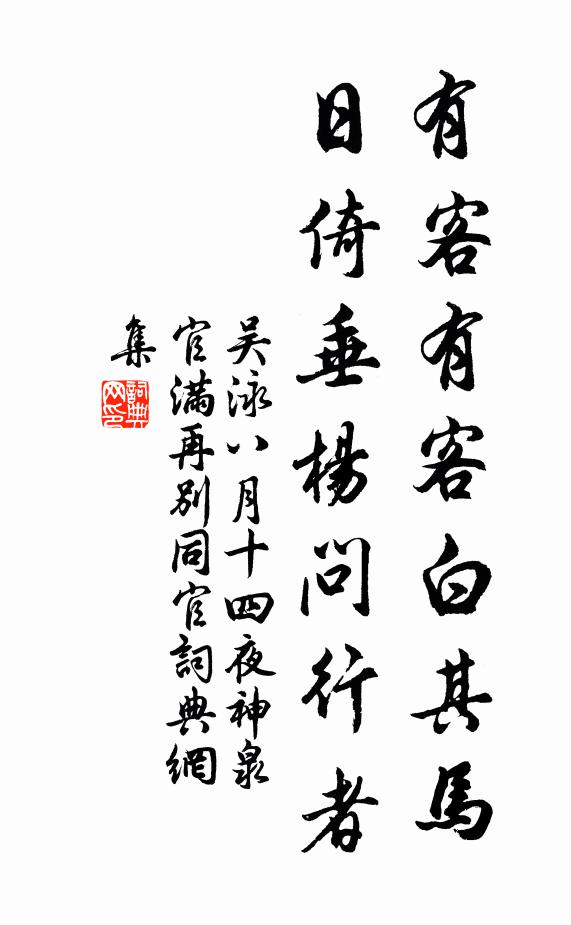 有客有客白其馬
日倚垂楊問行者
吴泳八月十四夜神泉
官滿再別同官詞典網
集
詞典
网印